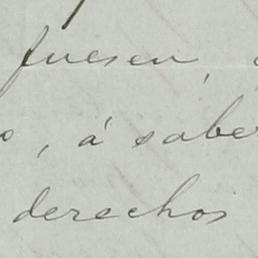 fuesen,
o, á sabe
derechos